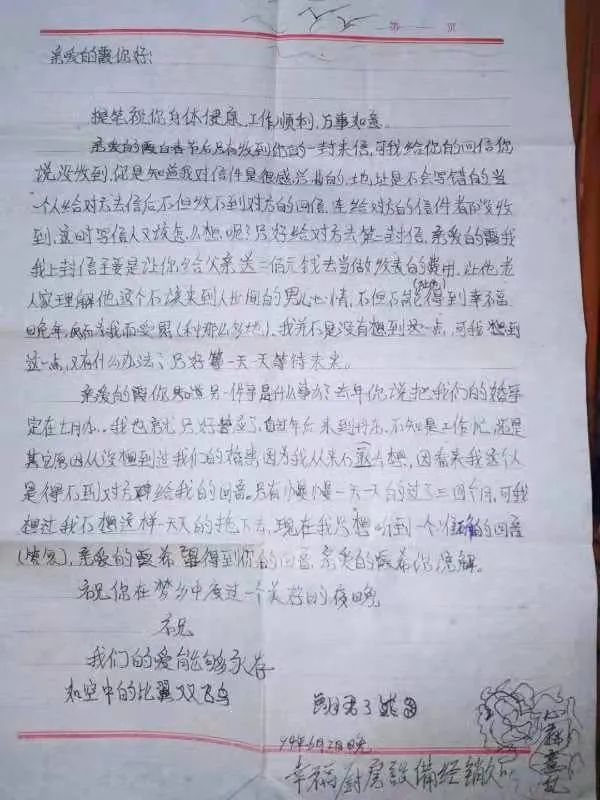 第 页
亲爱的霞你好:
提笔祝你身体健康,工作顺利,万事如意。
亲爱的霞自春节后只有收到你的一封来信,可我给你的回信你
说没收到,你是知道我对信件是很感兴趣的,地址是不会写错的当
一个人给对方去信后不但收不到对方的回信,连给对方的信件都没收
到,这时写信人又该怎么想呢?只好给对方去第二封信,亲爱的霞我
我上封信主要是让你给父亲送二佰元钱去当做收麦的费用,让他老
人家理解他这个不该来到人世间的男儿心情,不但不能得到幸福
晚年,反而为我而受累(种那么多地),我并不是没有想到这一点,可我想到
这一点,又有什么办法?只好等一天一天等待未来。
亲爱的霞你知道另一件事是什么事吗?去年你说把我们的婚事
定在七月份,我也就只好答应了,自过年后来到,不知是工作忙,还是
其它原因从没想到过我们的婚事,因为我从来不去想,因看来我这个人
是得不到对方给我的回音。只有慢慢一天一天的过了三四个月,可我
想过我不想这样一天天的拖下去,现在我只想听到一个准确的回音
亲爱的霞希望得到你的回音,亲爱的霞希你谅解。
祝你在梦乡中度过一个美好的夜晚
祝
我们的爱能够永存
和空中的比翼双飞鸟
94年6月2日晚
幸福厨房設備经销处